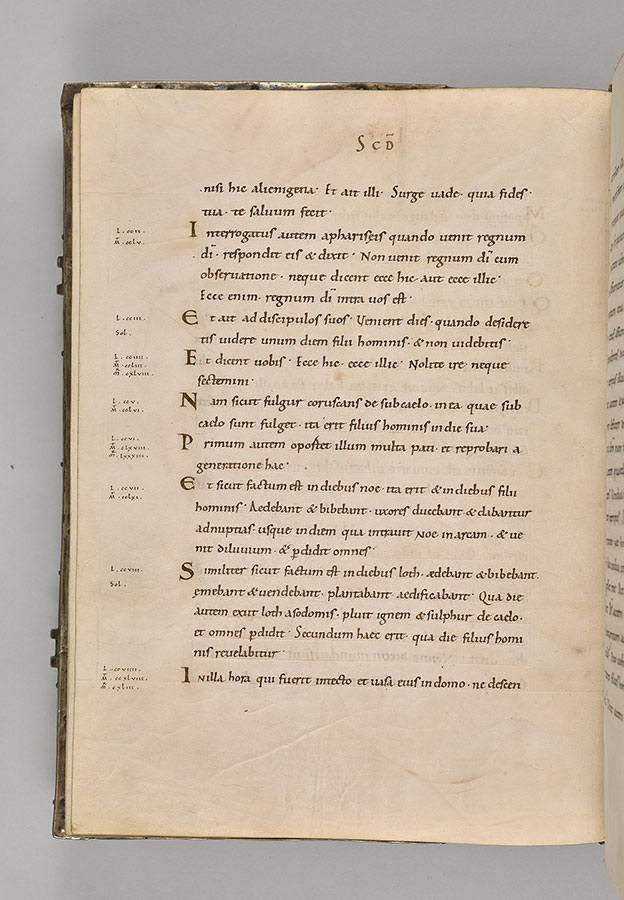 SCD̄
nisi hic alienigena · Et ait illi · Surge uade · quia fides
tua · te saluum fecit ·
L . ccii .
Interrogatus autem aphariseis quando uenit regnum
M̄ . cclv .
dī · respondit eis & dixit · Non uenit regnum dī cum
obseruatione · neque dicent ecce hic · aut ecce illic ·
Ecce enim · regnum dī intra uos est ·
L . cciii .
Et ait ad discipulos suos · Uenient dies · quando desidere
Sol .
tis uidere unum diem filii hominis · & non uidebitis ·
L . cciiii .
Et dicent uobis · Ecce hic · ecce illic · Nolite ire · neque
sectemini ·
L . ccv .
Nam sicut fulgur coruscans de subcaelo · in ea · quae sub
M̄ . cclvi .
caelo sunt fulget · ita erit filius hominis in die sua ·
L . ccvi .
Primum autem opostet illum multa pati · et reprobari a
generatione hac ·
L . ccvii .
Et sicut factum est in diebus noe · ita erit & in diebus filii
M̄ . cclxi .
hominis · Aedebant & bibebant · uxores ducebant & dabantur
adnuptias · usque in diem qua intrauit Noe in arcam · & ue
nit diluuium · & p̄didit omnes ·
L . ccviii .
Similiter sicut factum est in diebus loth · aedebant & bibebant ·
Sol .
emebant & uendebant · plantabant aedificabant · Qua die
autem exiit loth asodomis · pluit ignem & sulphur de caelo ·
et omnes p̄didit · Secundum haec erit · qua die filius homi
nis reuelabitur ·
L . ccviiii .
In illa hora qui fuerit intecto et uasa eius in domo · ne descen